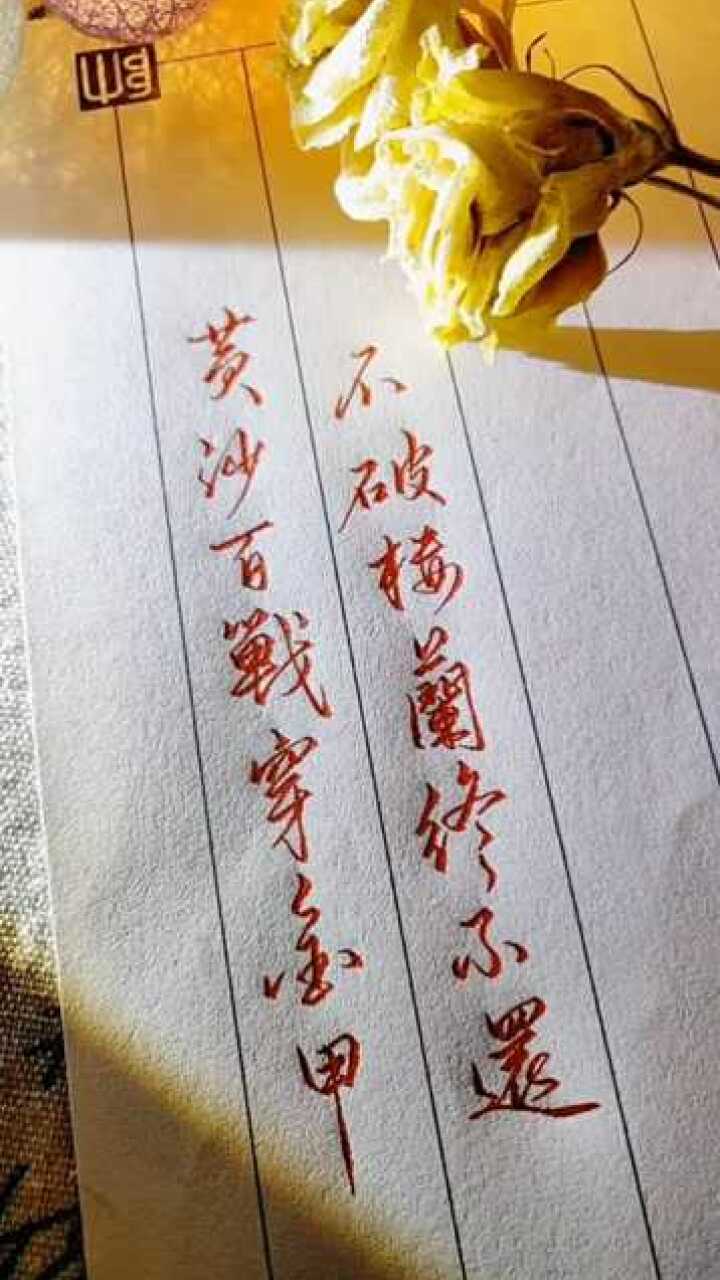 黄沙百戰穿金甲
不破楼蘭终不還